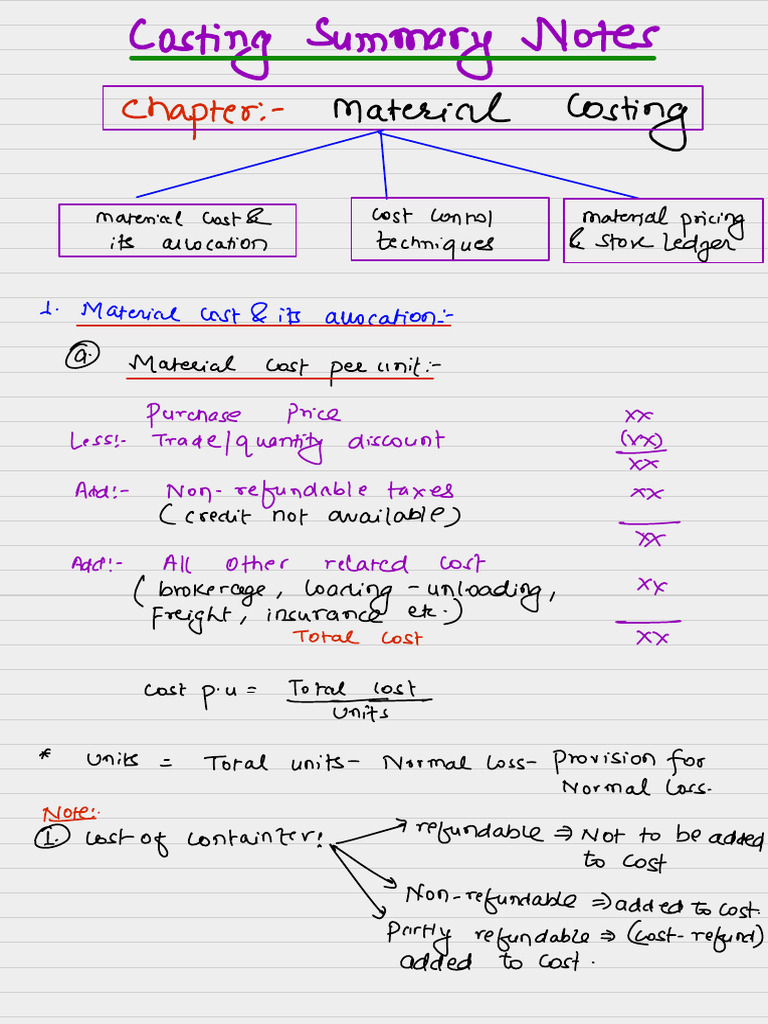 Costing Summary Notes
Chapter:- Material Costing
Material Cost &
its allocation
Cost Control
techniques
Material pricing
& Store Ledger
1. Material Cost & its allocation:-
a. Material Cost per unit:-
Purchase Price xx
Less:- Trade/quantity discount (xx)
xx
Add:- Non-refundable taxes xx
(credit not available)
xx
Add:- All Other related Cost
(brokerage, loading-unloading, xx
Freight, insurance etc.)
Total Cost xx
Cost p.u = Total Cost
Units
* Units = Total units - Normal Loss - Provision for
Normal Loss.
Note:-
1. Cost of Containter:
refundable ⇒ Not to be added
to cost
Non-refundable ⇒ added to cost.
Partly refundable ⇒ (cost-refund)
added to cost.